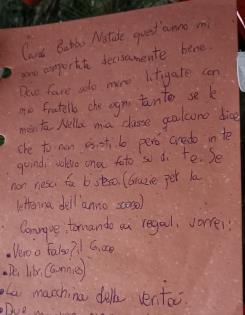 Caro Babbo Natale quest'anno mi
sono comportata decisamente bene.
Devo fare solo meno litigate con
mio fratello che ogni tanto se le
merita Nella mia classe qualcuno dice
che tu non esisti, Io però credo in te
quindi volevo una foto su di te. Se
non riesci fa lo stesso. (Grazie per la
letterina dell'anno scorso)
Comunque, tornando ai regali, vorrei:
• Vero o Falso?; il Gioco
• Dei libri (Gunnies)
• La macchina della verità
• Due